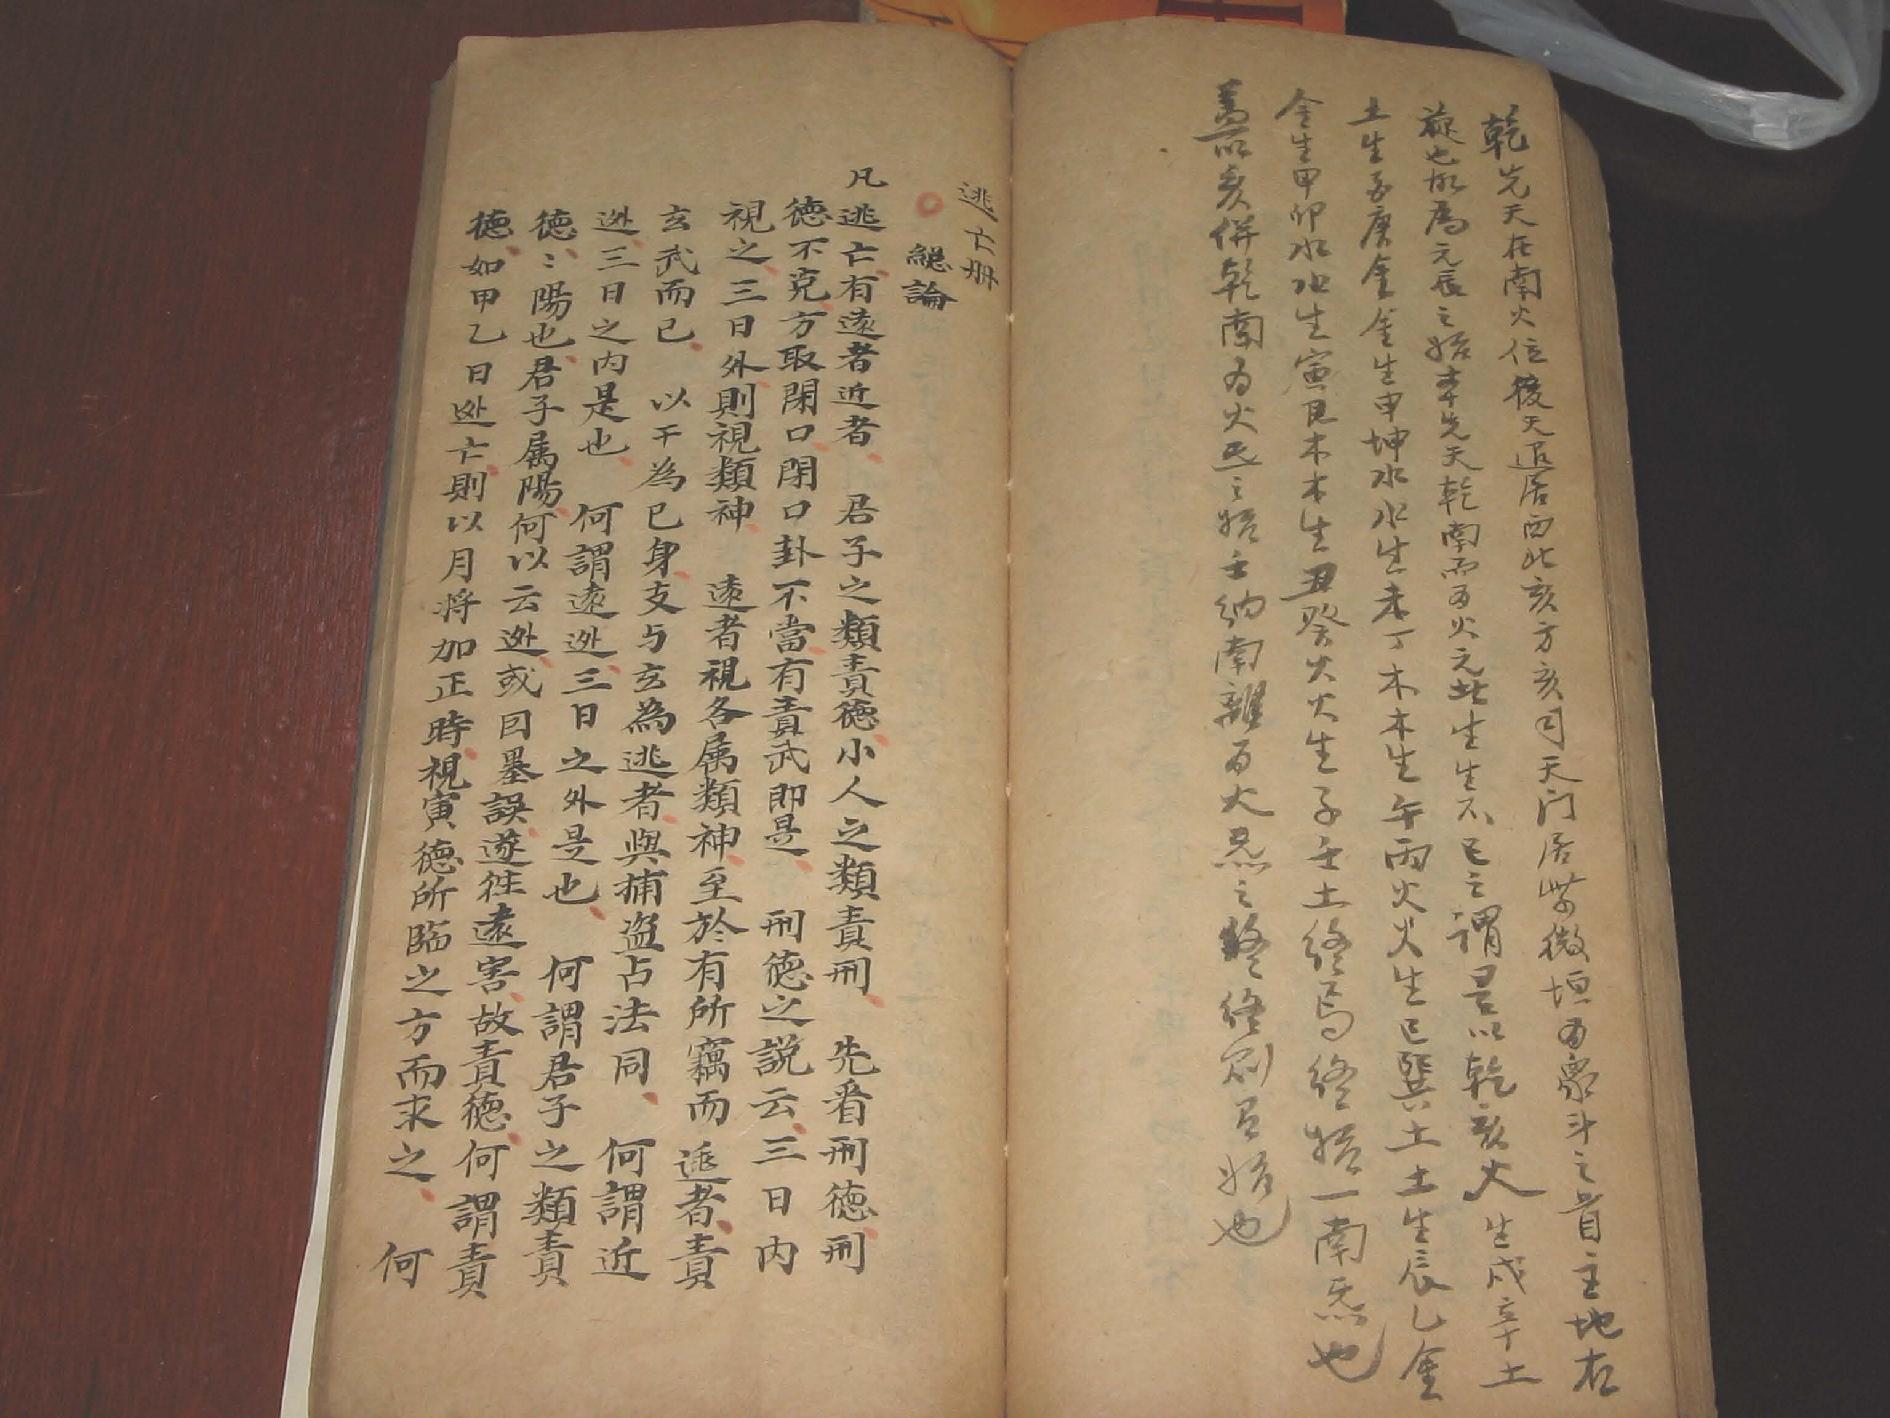 乾先天在南火位後天退居西北亥方亥司天门居紫微垣为众斗之首主地右
旋也故為元辰之始本先天乾南而为火元此生生不已之謂是以乾亥火生戌辛土
土生酉庚金金生申坤水水生未丁木木生午丙火火生巳巽土土生辰乙金
金生甲卯水水生寅艮木木生丑癸火火生子壬土終焉終始一南炁也
盖以亥併乾南为火炁之始壬納南離为火炁之終終则有始也
逃亡册
總論
凡逃亡有遠者近者 君子之類責德小人之類責刑 先看刑德刑
德不克方取閉口閉口卦不當有責武即是 刑德之説云三日内
視之三日外則視類神 遠者視各属類神至於有所竊而逃者責
玄武而已 以干為已身支与玄為逃者與捕盗占法同 何謂近
迯三日之内是也 何謂遠迯三日之外是也 何謂君子之類責
德：陽也君子属陽何以云迯或因墨誤遂往遠害故責德何謂責
德如甲乙日迯亡則以月将加正時視寅德所臨之方而求之 何